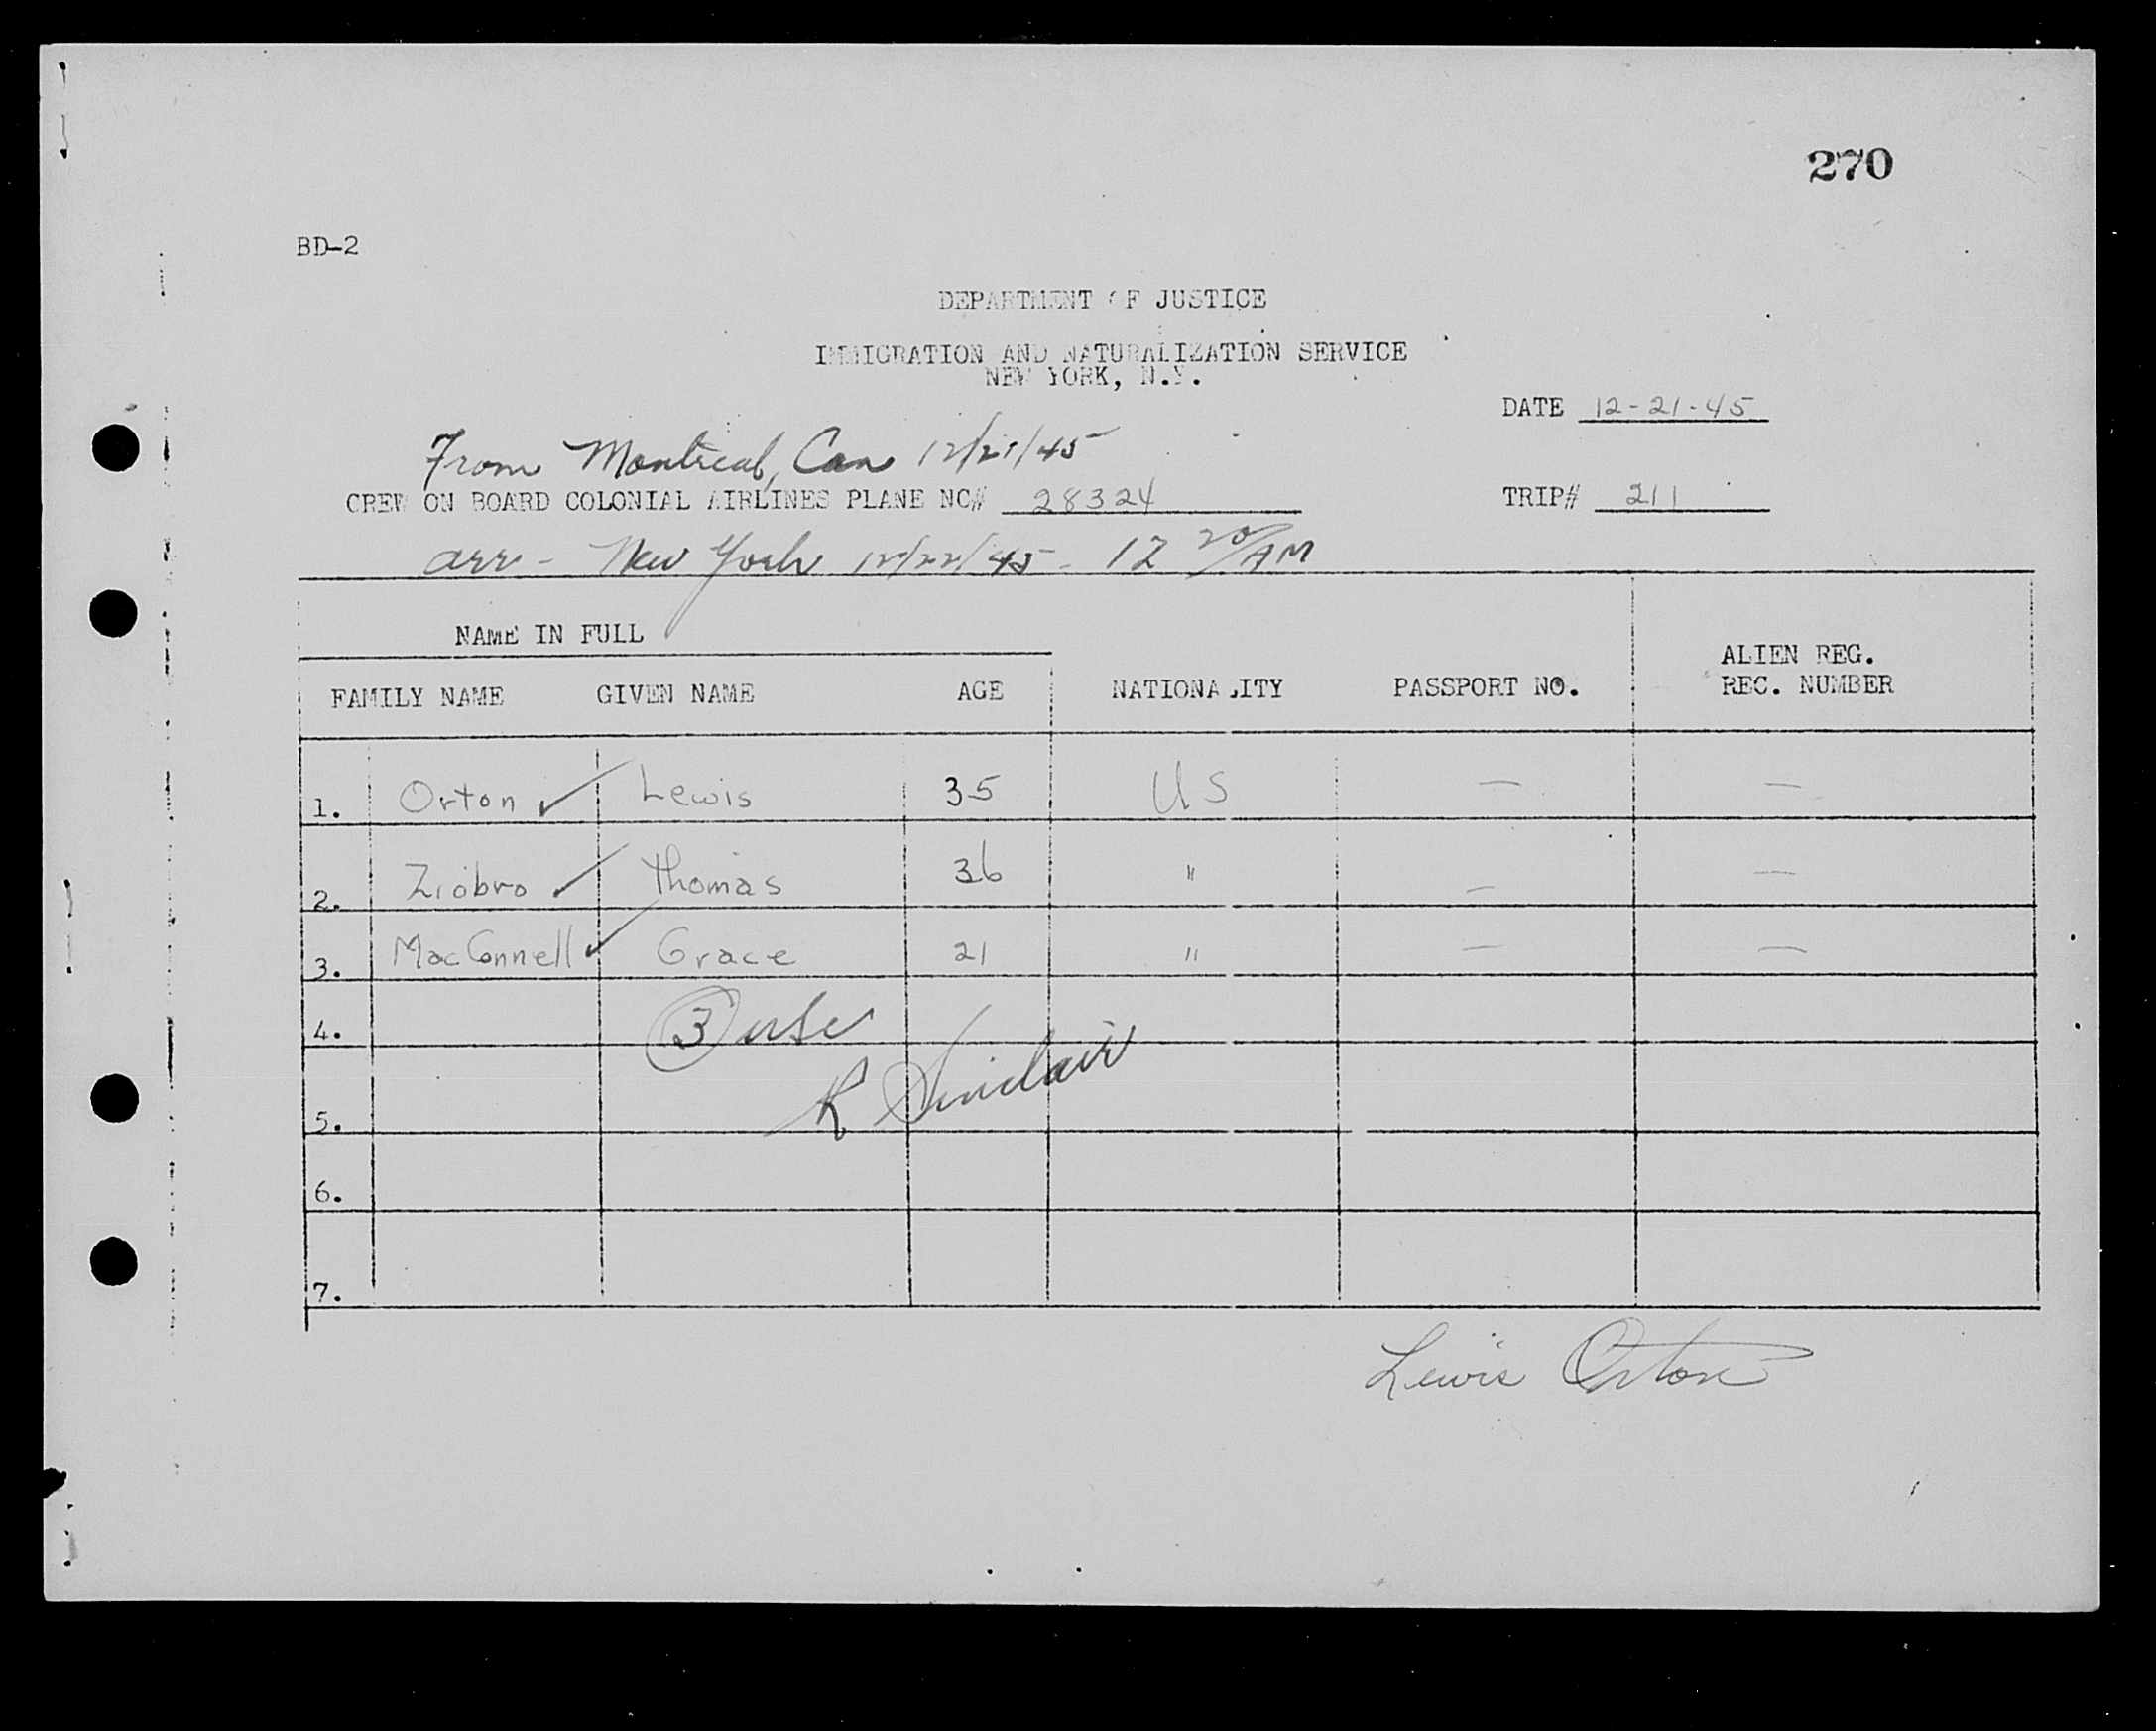 270
BD-2
DEPARTMENT OF JUSTICE
IMMIGRATION AND NATURALIZATION SERVICE
NEW YORK, N.Y.
DATE 12-21-45
From Montreal, Can 12/21/45
CREW ON BOARD COLONIAL AIRLINES PLANE NC# 28324 TRIP# 211
arr - New York 12/22/45 - 12 20/AM
NAME IN FULL
ALIEN REG.
FAMILY NAME GIVEN NAME AGE NATIONALITY PASSPORT NO. REC. NUMBER
1. Orton ✓ Lewis 35 US — —
2. Ziobro ✓ Thomas 36 " — —
3. MacConnell ✓ Grace 21 " — —
4. 3 usc
5. R Sinclair
6.
7.
Lewis Orton